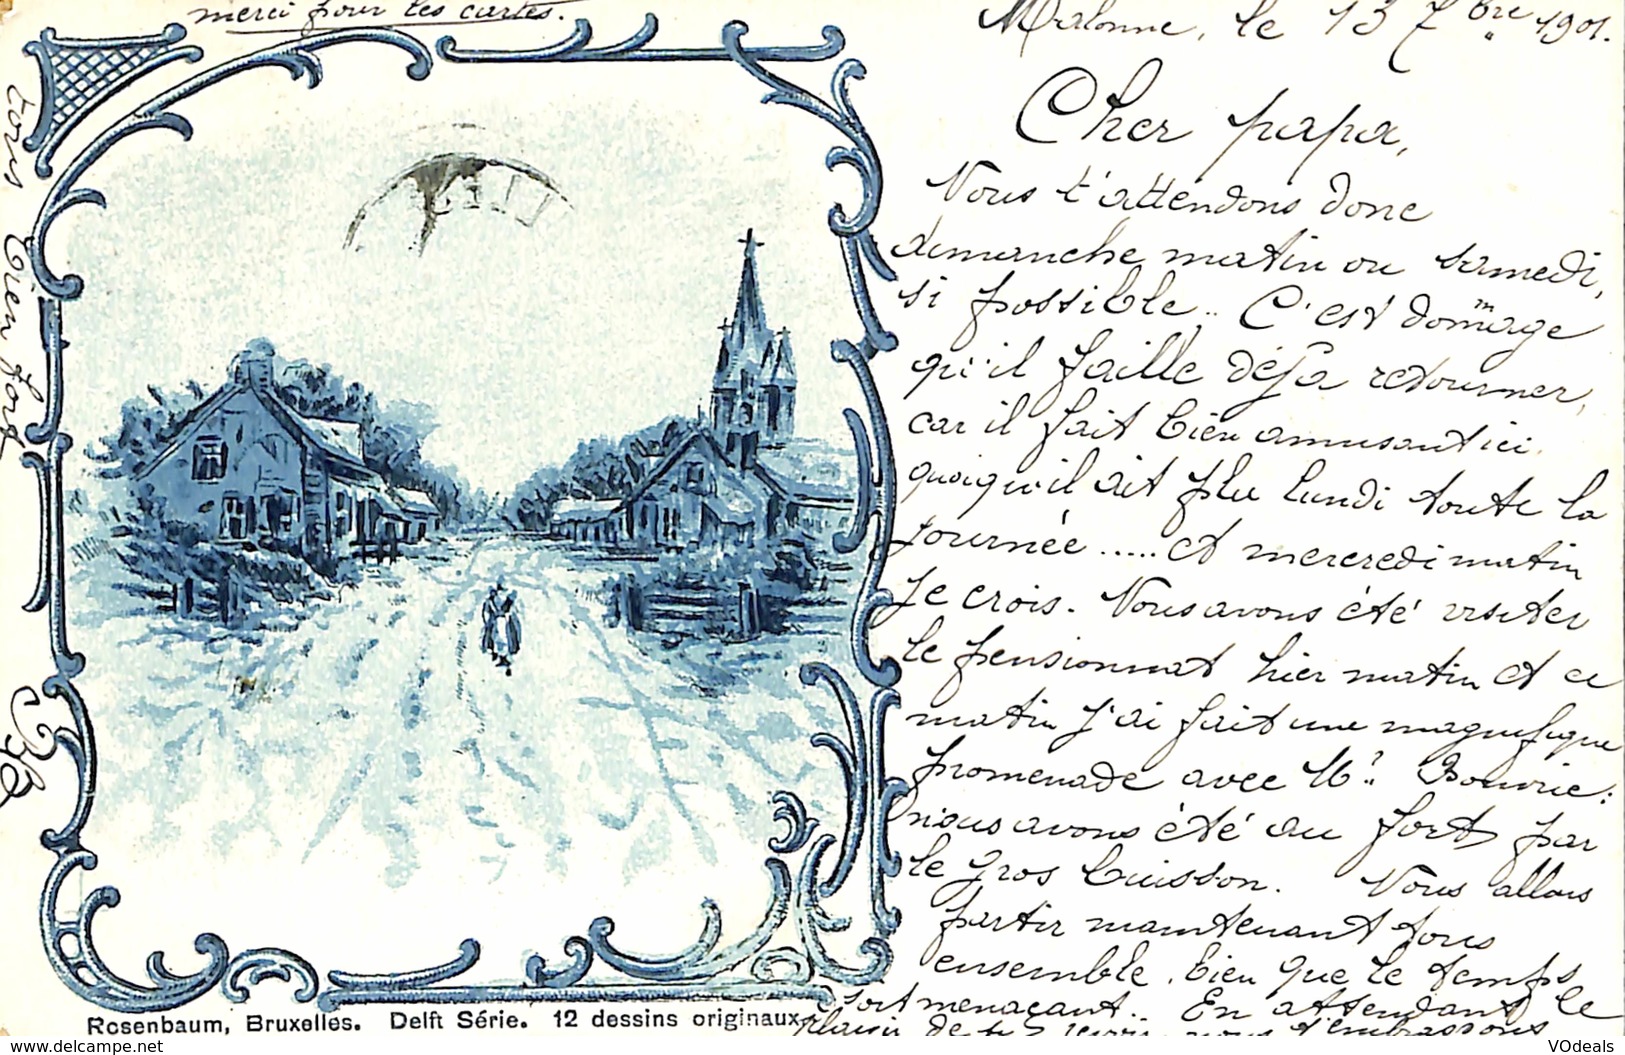 Malonne, le 13 7bre 1901.
Cher papa,
Nous t'attendons donc
dimanche matin ou samedi,
si possible.. C'est dommage
qu'il faille déjà retourner,
car il fait bien amusant ici.
quoiqu'il ait plu lundi toute la
journée ..... et mercredi matin
je crois. Nous avons été visiter
le pensionnat hier matin et ce
matin j'ai fait une magnifique
promenade avec Mr. Bouvrie:
nous avons été au fort par
le Gros buisson. Nous allons
partir maintenant tous
ensemble, bien que le temps
soit menaçant.. En attendant le
plaisir de te revoir, nous t'embrassons
tous bien fort
merci pour les cartes.
Rosenbaum, Bruxelles. Delft Série. 12 dessins originaux.
https://www.delcampe.net
VOdeals